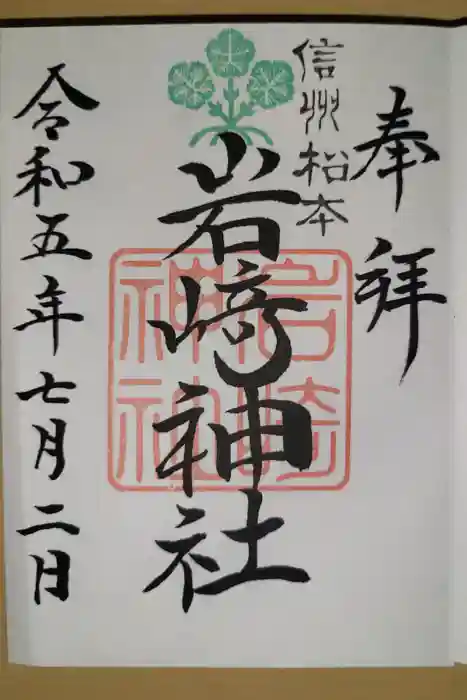 奉拝
信州松本
岩崎神社
岩崎
神社
令和五年七月二日